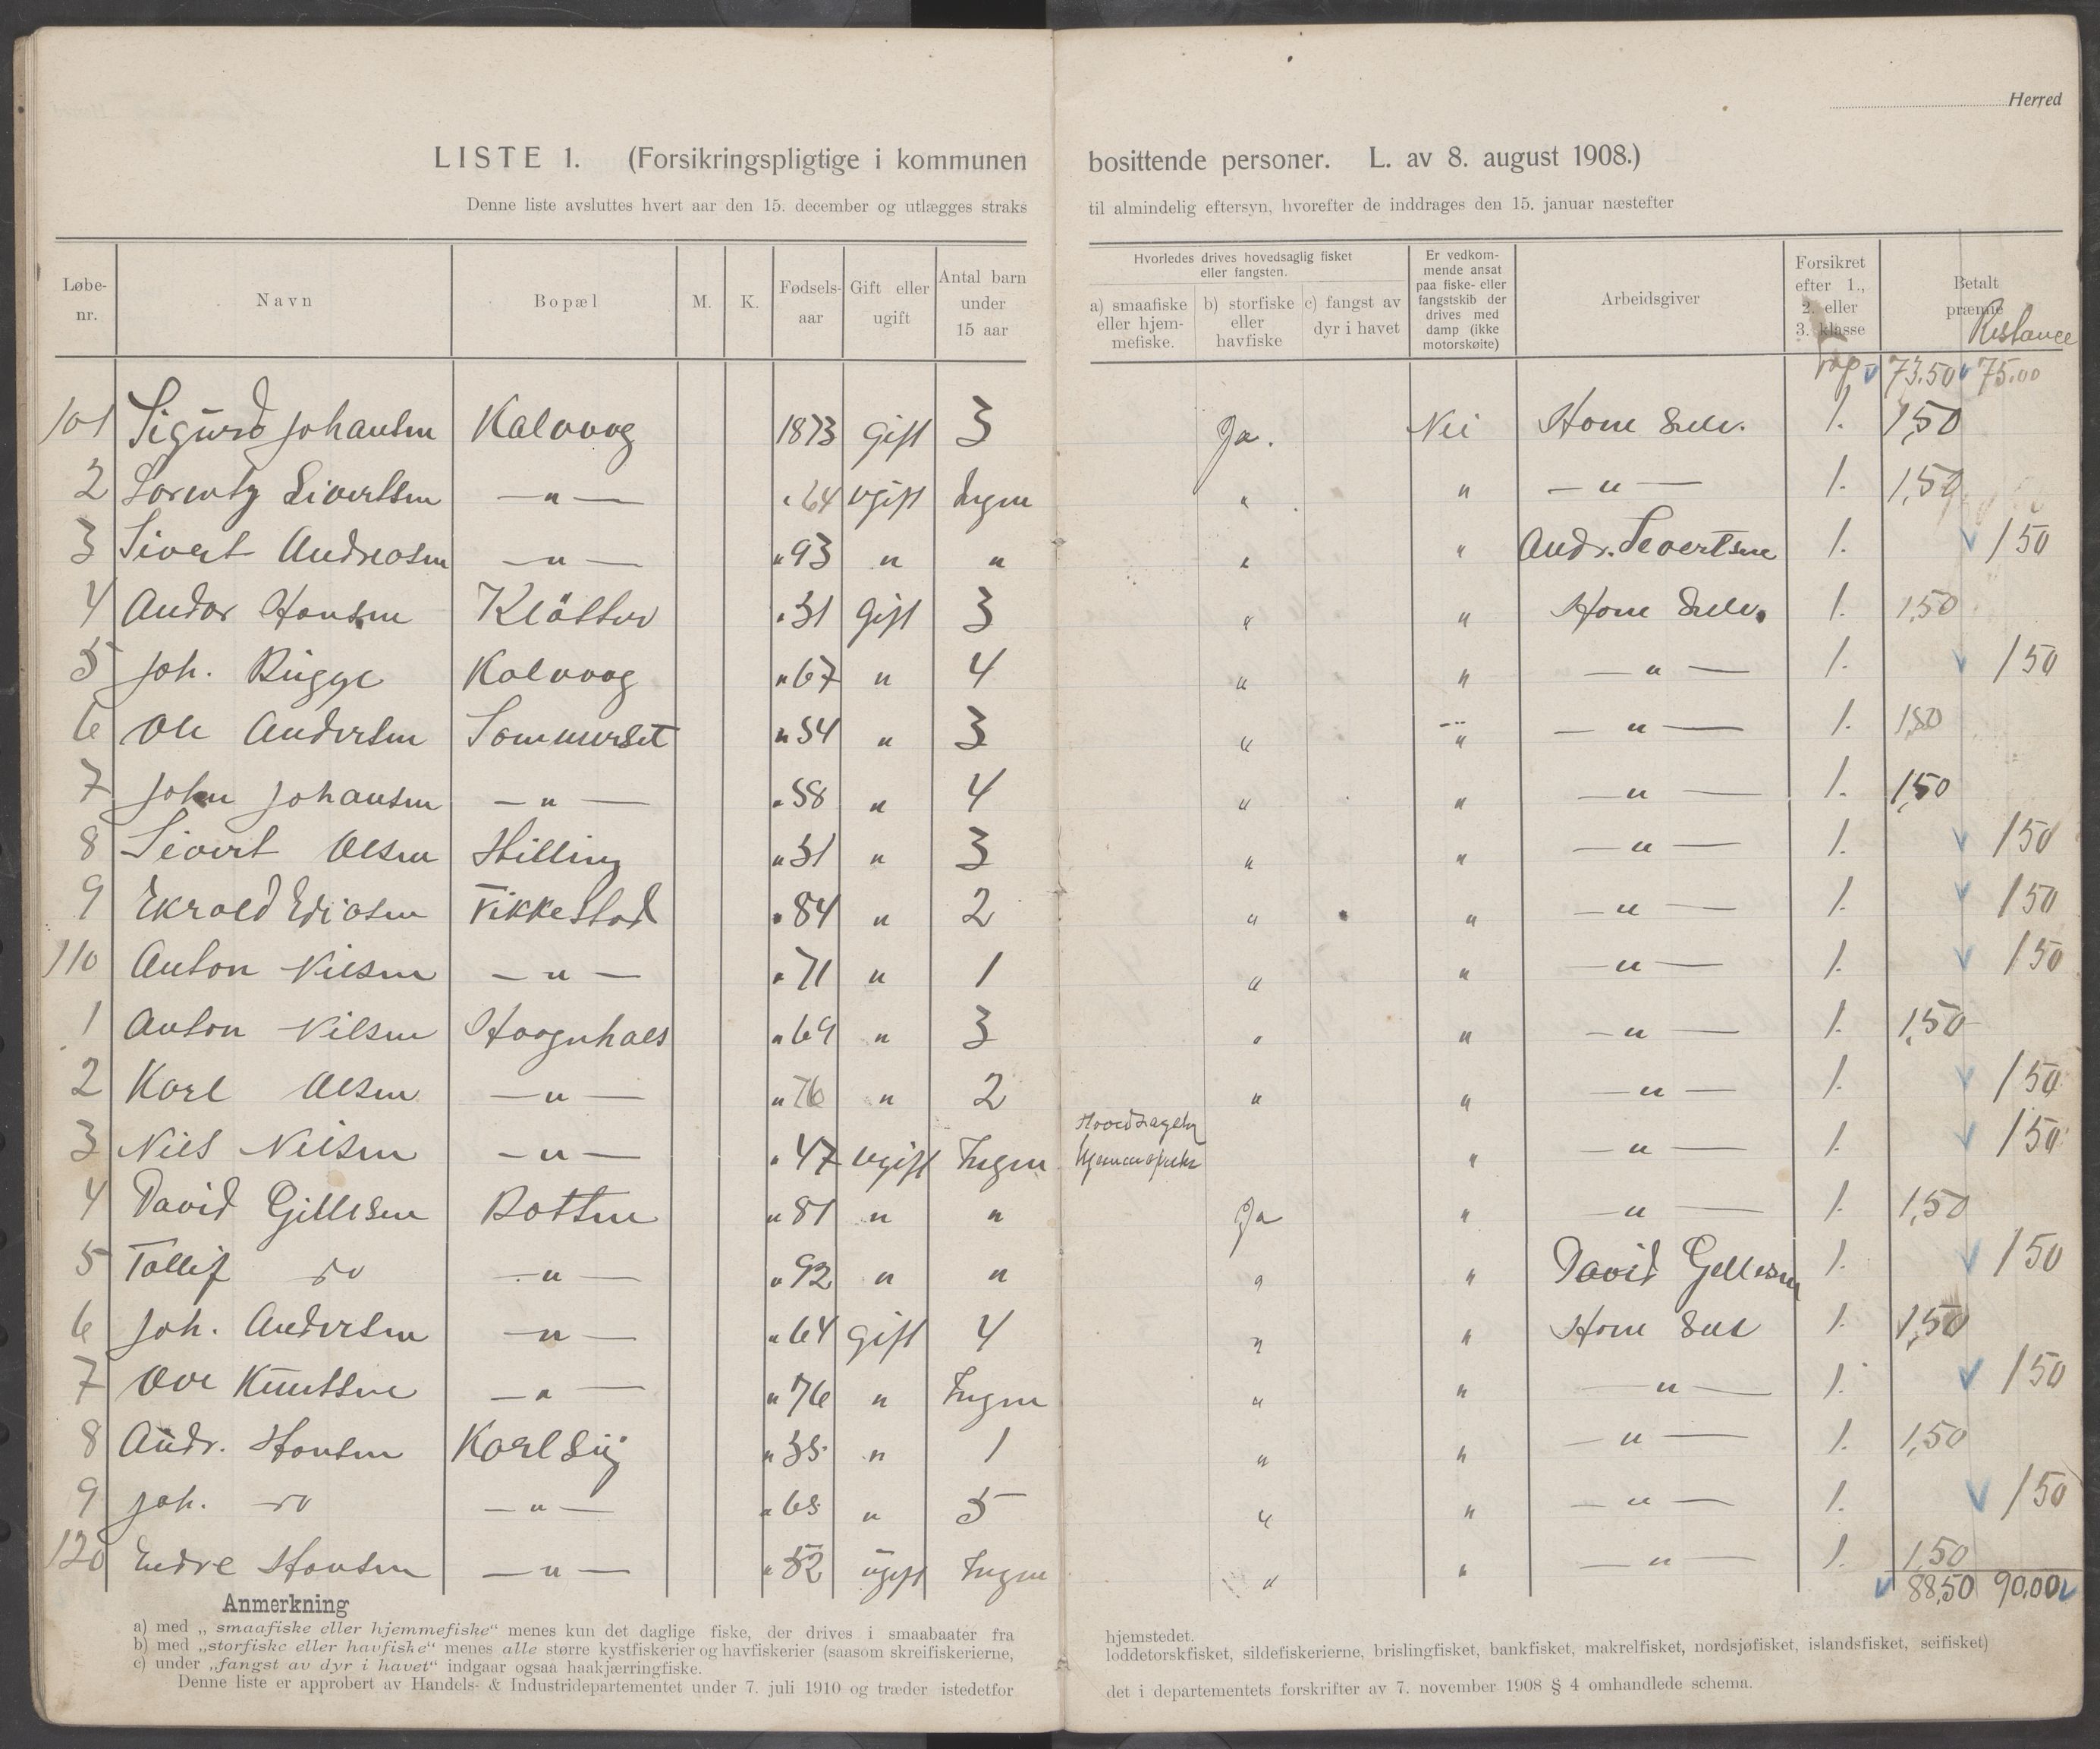 Herred
LISTE 1. (Forsikringspligtige i kommunen bosittende personer. L. av 8. august 1908.)
Denne liste avsluttes hvert aar den 15. december og utlægges straks til almindelig eftersyn, hvorefter de inddrages den 15. januar næstefter
Løbe-nr. Navn Bopæl M. K. Fødsels-aar Gift eller ugift Antal barn under 15 aar Hvorledes drives hovedsaglig fisket eller fangsten. a) smaafiske eller hjem-mefiske. b) storfiske eller havfiske c) fangst av dyr i havet Er vedkom-mende ansat paa fiske- eller fangstskib der drives med damp (ikke motorskøite) Arbeidsgiver Forsikret efter 1., 2. eller 3. klasse Betalt præmie Restance
73.50 75.00
101 Sigurd Johansen Kalvaag 1873 gift 3 Ja. Nei Ham selv. 1. 1,50
2 Lorentz Sivertsen — " — " 64 ugift Ingen " " — " — 1. 1,50
3 Sivert Andreasen — " — " 93 " " " " Andr. Severtsen 1. 1 50
4 Andor Hansen " 31 Gift 3 " " Ham Selv. 1. 1,50
5 Joh. Rügge Kalvaag " 67 " 4 " " — " — 1. 1 50
6 Ole Andersen Sommerset " 54 " 3 " " — " — 1. 1,50
7 John Johansen — " — " 58 " 4 " " — " — 1. 1,50
8 Sivert Olsen Hilling " 31 " 3 " " — " — 1. 1 50
9 Fikkestad " 84 " 2 " " — " — 1. 1 50
110 Anton Nilsen — " — " 71 " 1 " " — " — 1. 1 50
1 Anton Nilsen Haagnhals " 69 " 3 " " — " — 1. 1,50
2 Karl Olsen — " — " 76 " 2 " " — " — 1. 1 50
3 Niels Nielsen — " — " 47 ugift Ingen " — " — 1. 1 50
4 David Gillesen Botten " 81 " " Ja " — " — 1. 1,50
5 Tollef do — " — " 92 " " " " David Gillesen 1. 1 50
6 Joh. Andersen — " — " 64 gift 4 " " Ham Selv 1. 1,50
7 Ove Knutsen — " — " 76 " Ingen " " — " — 1. 1 50
8 Andr. Hansen " 35 " 1 " " — " — 1. 1,50
9 Joh. do — " — " 65 " 5 " " — " — 1. 1 50
120 Endre Hansen — " — " 52 ugift Ingen " " — " — 1. 1,50
88,50 90.00
Anmerkning
a) med „smaafiske eller hjemmefiske“ menes kun det daglige fiske, der drives i smaabaater fra hjemstedet.
b) med „storfiske eller havfiske“ menes alle større kystfiskerier og havfiskerier (saasom skreifiskerierne, loddetorskfisket, sildefiskerierne, brislingfisket, bankfisket, makrelfisket, nordsjøfisket, islandsfisket, seifisket)
c) under „fangst av dyr i havet“ indgaar ogsaa haakjærringfiske.
Denne liste er approbert av Handels- & Industridepartementet under 7. juli 1910 og træder istedetfor det i departementets forskrifter av 7. november 1908 § 4 omhandlede schema.